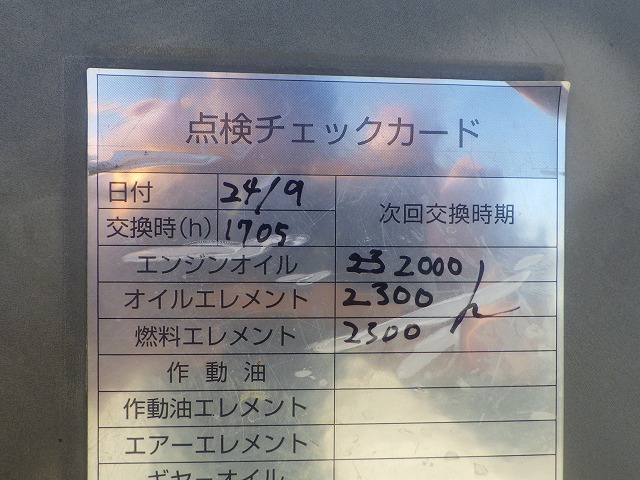 点検チェックカード
日付 24/9 次回交換時期
交換時(h) 1705
エンジンオイル 2000
オイルエレメント 2300 h
燃料エレメント 2300
作動油
作動油エレメント
エアーエレメント
ギヤーオイル